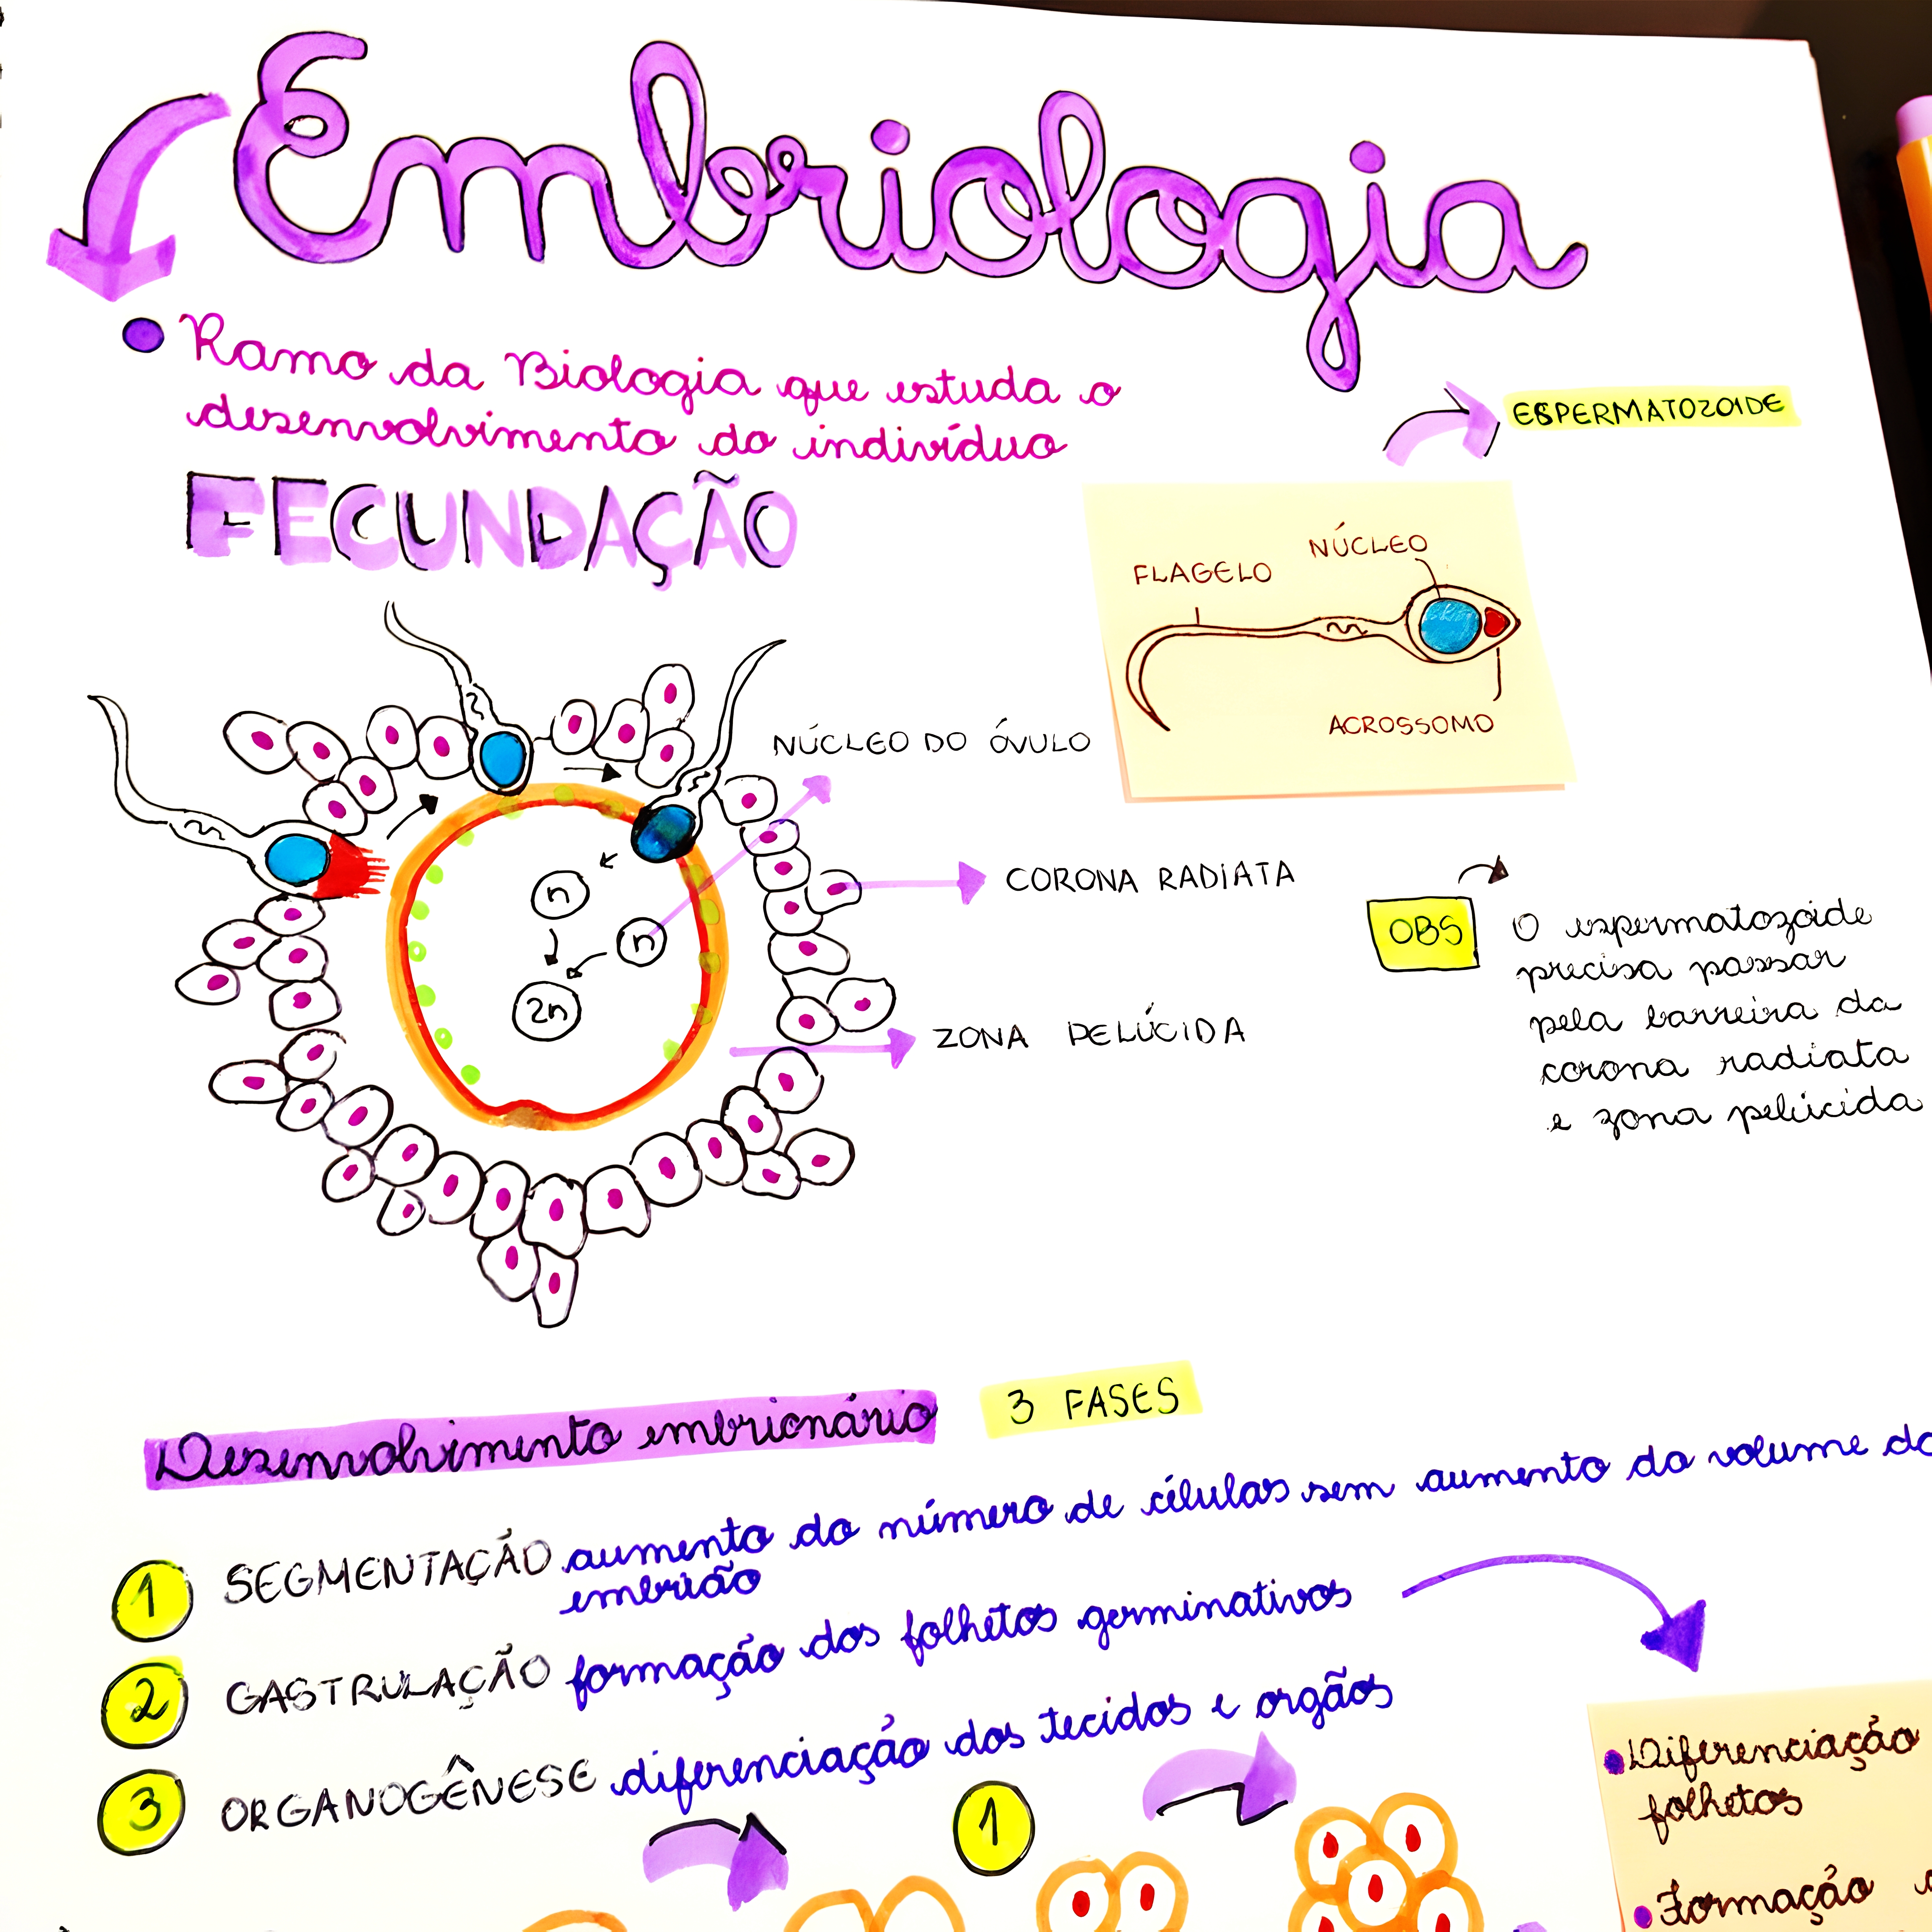 Embriologia
Ramo da Biologia que estuda o
desenvolvimento do indivíduo
FECUNDAÇÃO
ESPERMATOZOIDE
NÚCLEO
FLAGELO
ACROSSOMO
NÚCLEO DO ÓVULO
CORONA RADIATA
n
n
2n
ZONA PELÚCIDA
OBS
O espermatozoide
precisa passar
pela barreira da
corona radiata
e zona pelúcida
Desenvolvimento embrionário 3 FASES
1 SEGMENTAÇÃO aumento do número de células sem aumento do volume do
embrião
2 GASTRULAÇÃO formação dos folhetos germinativos
3 ORGANOGÊNESE diferenciação dos tecidos e orgãos
1
Diferenciação
folhetos
Formação